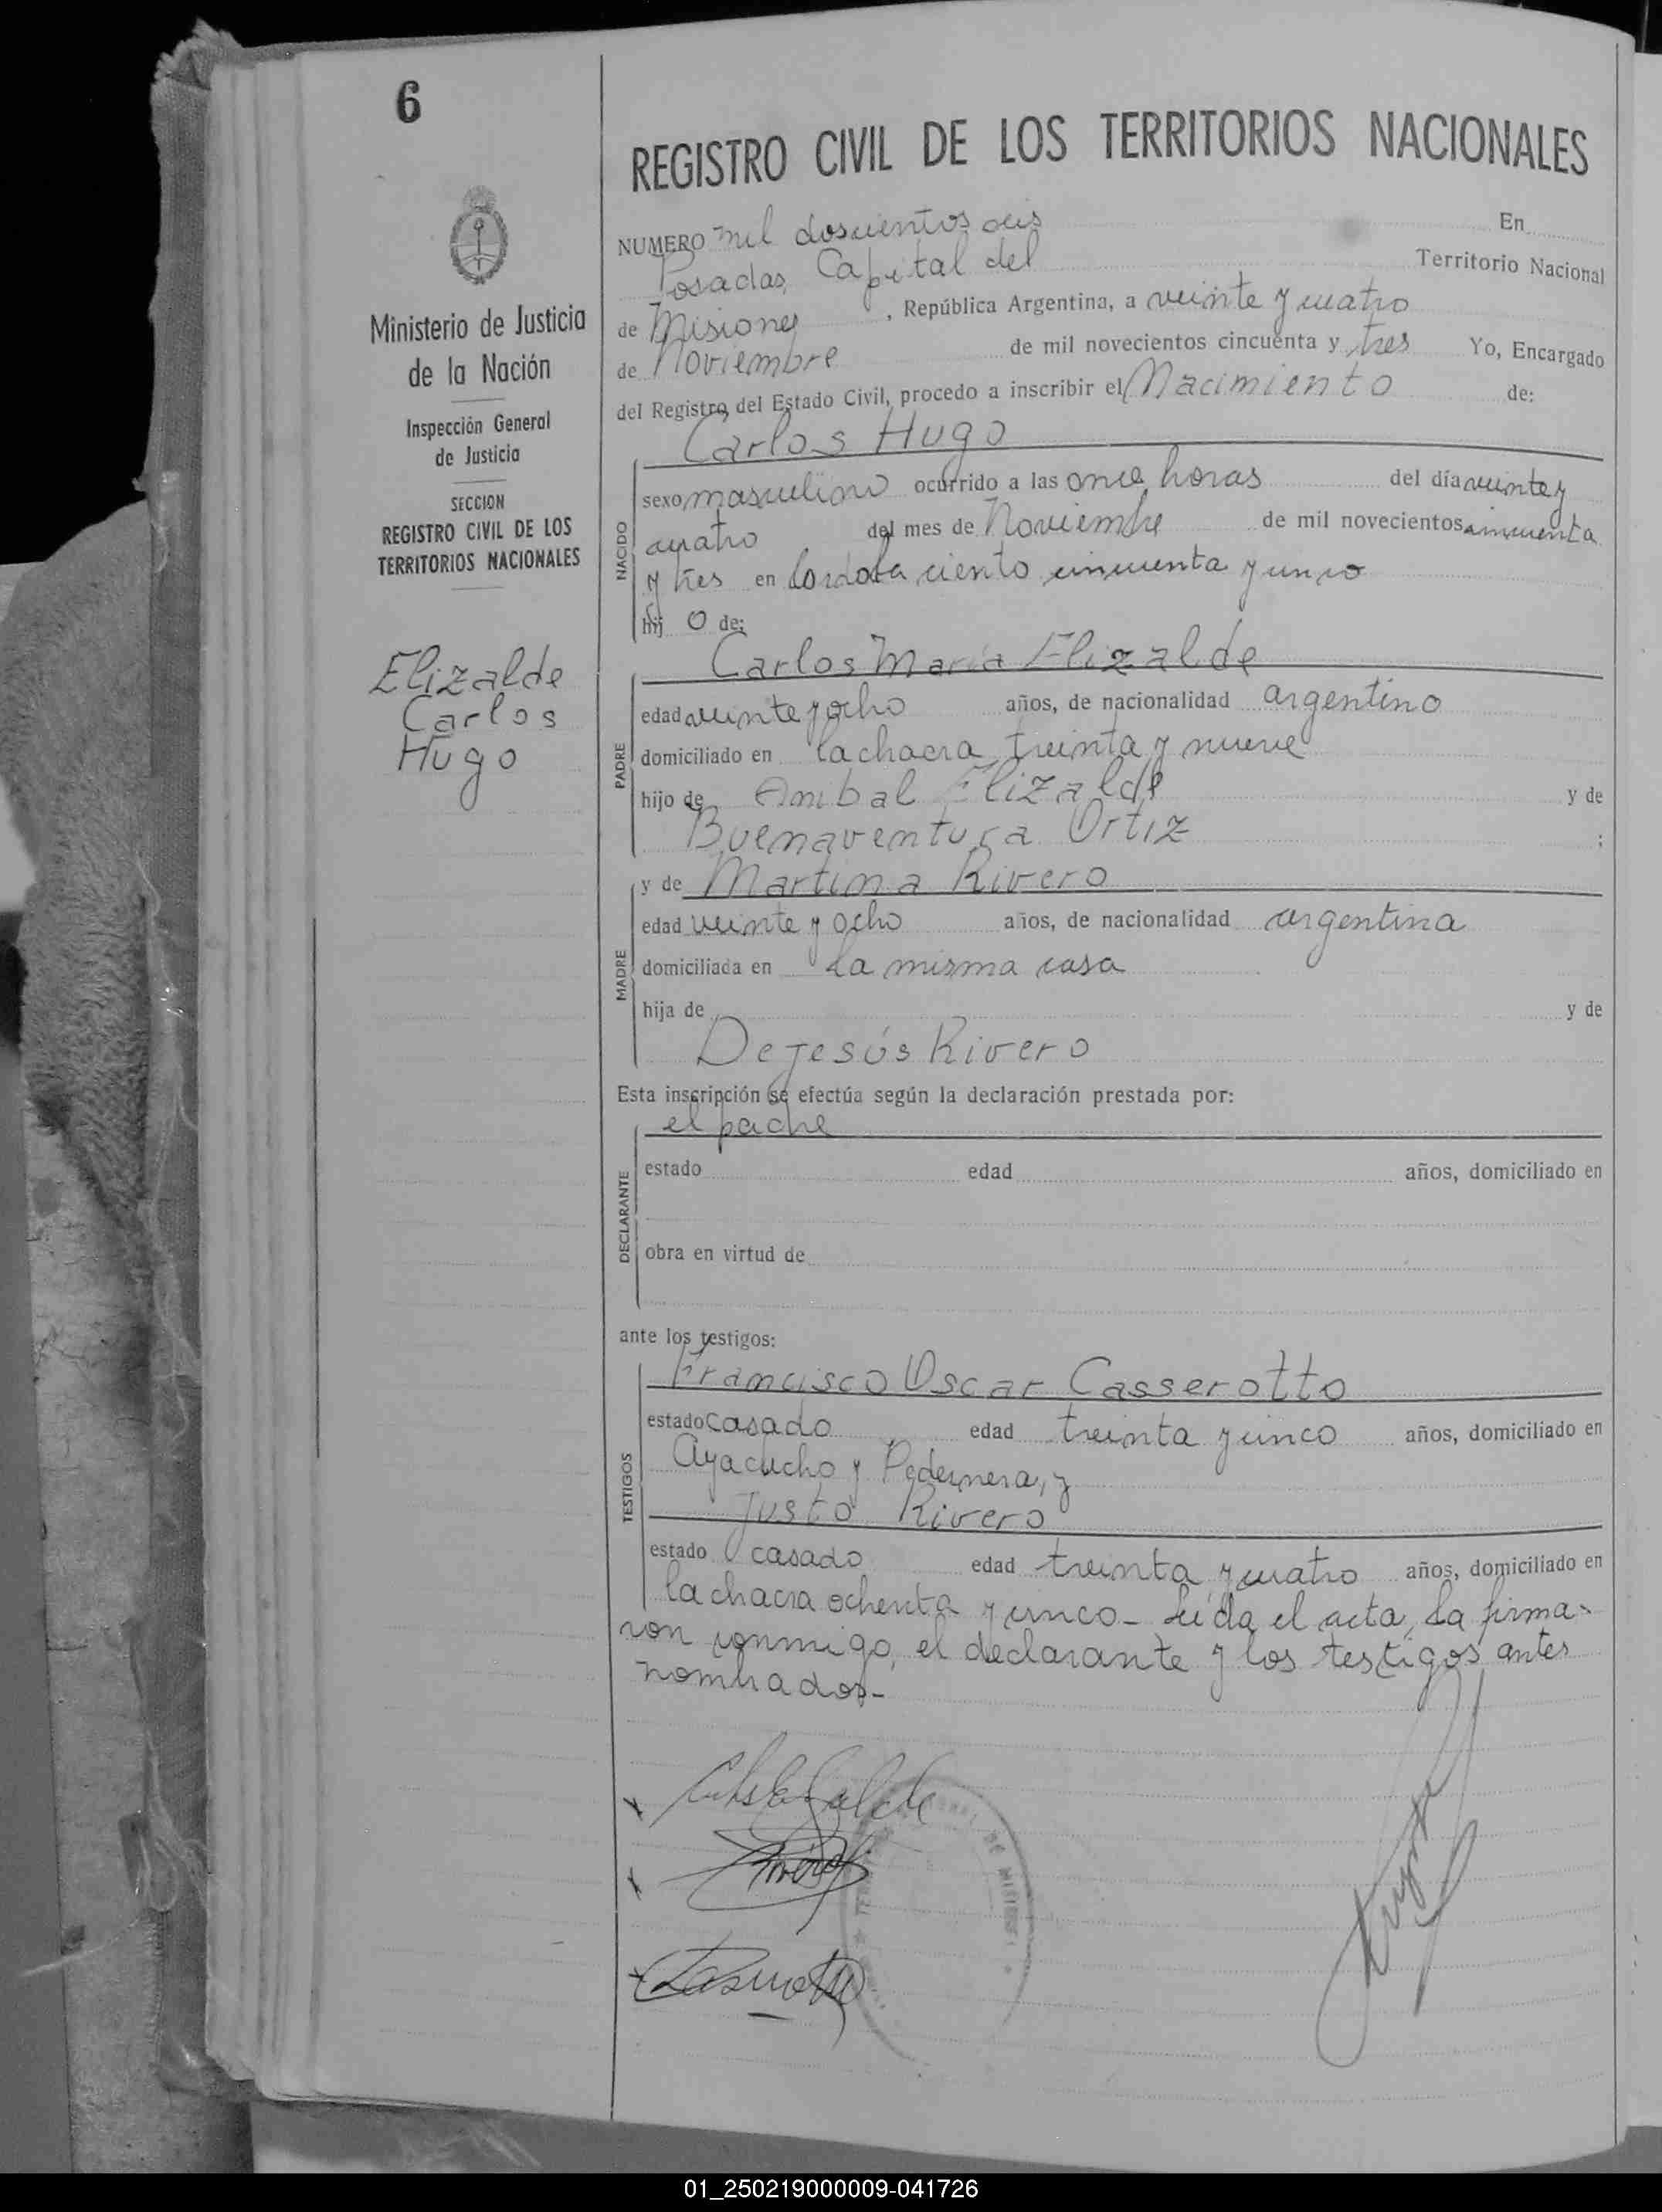 6
Ministerio de Justicia
de la Nación
Inspección General
de Justicia
SECCION
REGISTRO CIVIL DE LOS
TERRITORIOS NACIONALES
Elizalde
Carlos
Hugo
REGISTRO CIVIL DE LOS TERRITORIOS NACIONALES
NUMERO mil doscientos seis En
Posadas, Capital del Territorio Nacional
de Misiones, República Argentina, a veinte y cuatro
de Noviembre de mil novecientos cincuenta y tres Yo, Encargado
del Registro del Estado Civil, procedo a inscribir el Nacimiento de:
Carlos Hugo
NACIDO
sexo masculino ocurrido a las once horas del día veinte y
cuatro del mes de Noviembre de mil novecientos cincuenta
y tres en Cordoba ciento cincuenta y cinco
hij o de:
Carlos Maria Elizalde
PADRE
edad veinte y ocho años, de nacionalidad argentino
domiciliado en la chacra treinta y nueve
hijo de Anibal Elizalde y de
Buenaventura Ortiz ;
y de Martina Rivero
MADRE
edad veinte y ocho años, de nacionalidad argentina
domiciliada en la misma casa
hija de y de
Dejesús Rivero
Esta inscripción se efectúa según la declaración prestada por:
el padre
DECLARANTE
estado edad años, domiciliado en
obra en virtud de
ante los testigos:
Francisco Oscar Casserotto
TESTIGOS
estado casado edad treinta y cinco años, domiciliado en
Ayacucho y Pedernera, y
Justo Rivero
estado casado edad treinta y cuatro años, domiciliado en
la chacra ochenta y cinco- Leída el acta, la firma-
ron conmigo, el declarante y los testigos antes
nombrados-
DE MISIONES
01_250219000009-041726